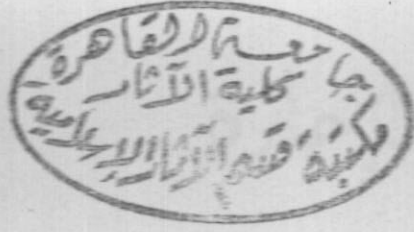 جامعة القاهرة
كلية الآثار
مكتبة قسم الآثار الإسلامية